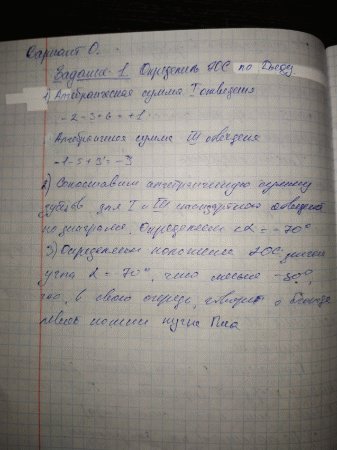 Вариант 0.
Задание 1. Определить ЭОС по Дьеду
1) Алгебраическая сумма I отведения
-2-3+6=+1
Алгебраическая сумма III отведения
-1-5+3=-3
2) Сопоставим алгебраическую сумму
зубцов для I и III стандартного отведения
по диаграмме, Определяем ∠α = -70°
3) Определяем положение ЭОС,
угла α = -70°, что меньше -30°,
нас, в свою очередь, о блокаде
левой ножки пучка Гиса